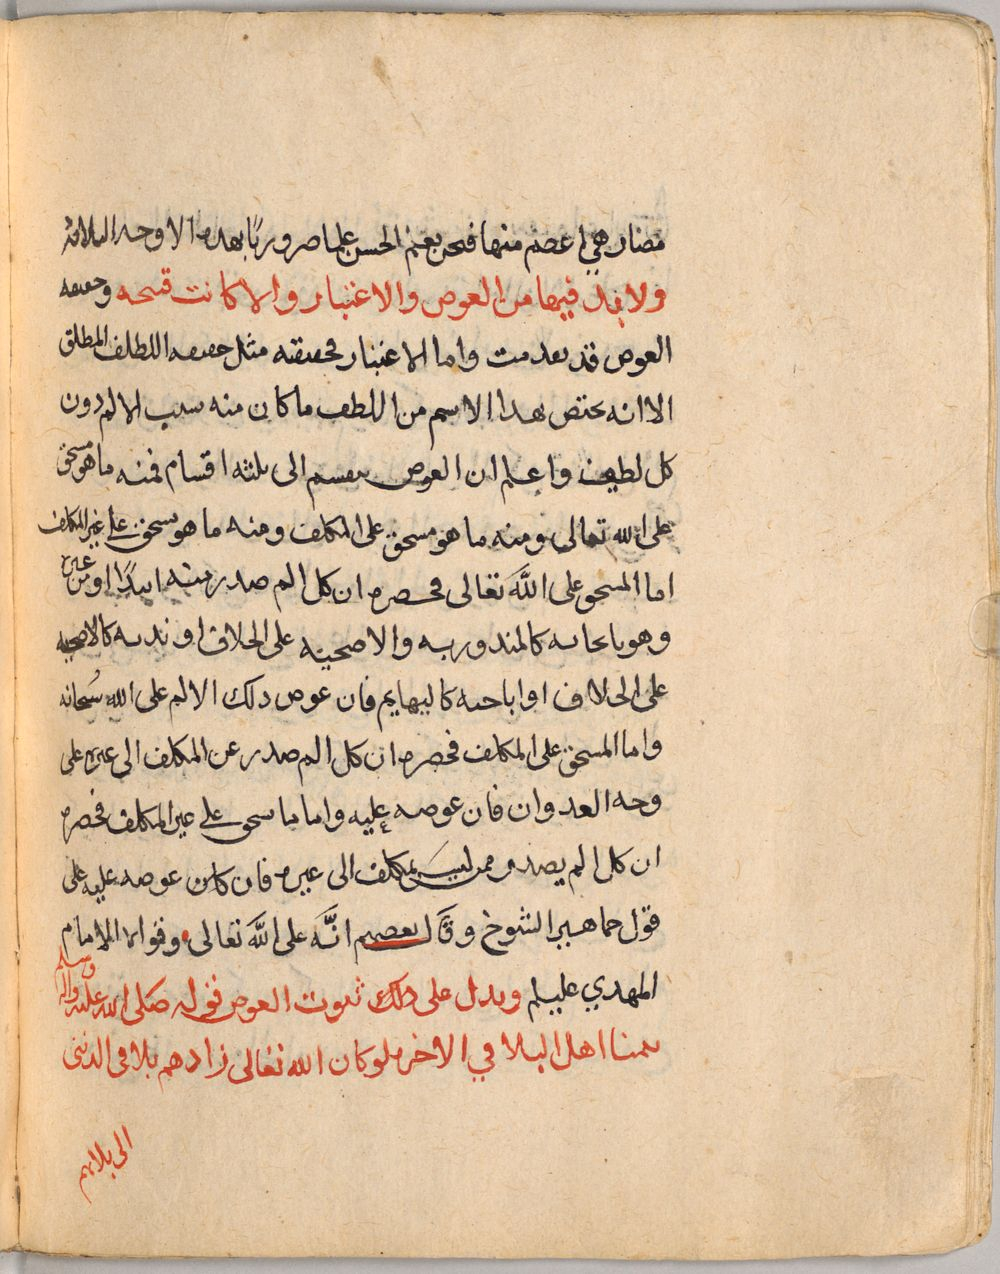 مضار هي اعظم منها فنحن نعلم الحسن علما ضروريا بهذه الاوجه الثلاثة
ولا بد فيها من العوض والاعتبار والا كانت قبيحه وحقيقه
العوض قد تقدمت واما الاعتبار فحقيقته مثل حقيقه اللطف المطلق
الا انه يختص هذا الاسم من اللطف ما كان منه سبب الالم دون
كل لطيف واعلم ان العوض ينقسم الى ثلثه اقسام فمنه ما هو مستحق
على الله تعالى ومنه ما هو مستحق على المكلف ومنه ما هو مستحق على غير المكلف
اما المستحق على الله تعالى فحصره ان كل الم صدر منه ابتدا او من غيره
وهو بايجابه كالمنذور به والاضحيه على الخلاف او ندبه كالاضحيه
على الخلاف او اباحته كالبهايم فان عوض ذلك الالم على الله سُبحانه
واما المستحق على المكلف فحصره ان كل الم صدر عن المكلف الى غيره على
وجه العدوان فان عوضه عليه واما ما يستحق على غير المكلف فحصره
ان كل الم يصدر ممن ليس بمكلف الى غيره فان كان عوضه عليه على
قول جماهير الشيوخ وقَال بعضهم انَّه على اللَّه تعالى وقواه الامام
المهدي عليلم ويدل على ذلك ثبوت العوض قوله صَلى الله عليه واله وسلم
يتمنا اهل البلا في الاخره لو كان الله تعالى زادهم بلا في الدنيى
الى بلائهم